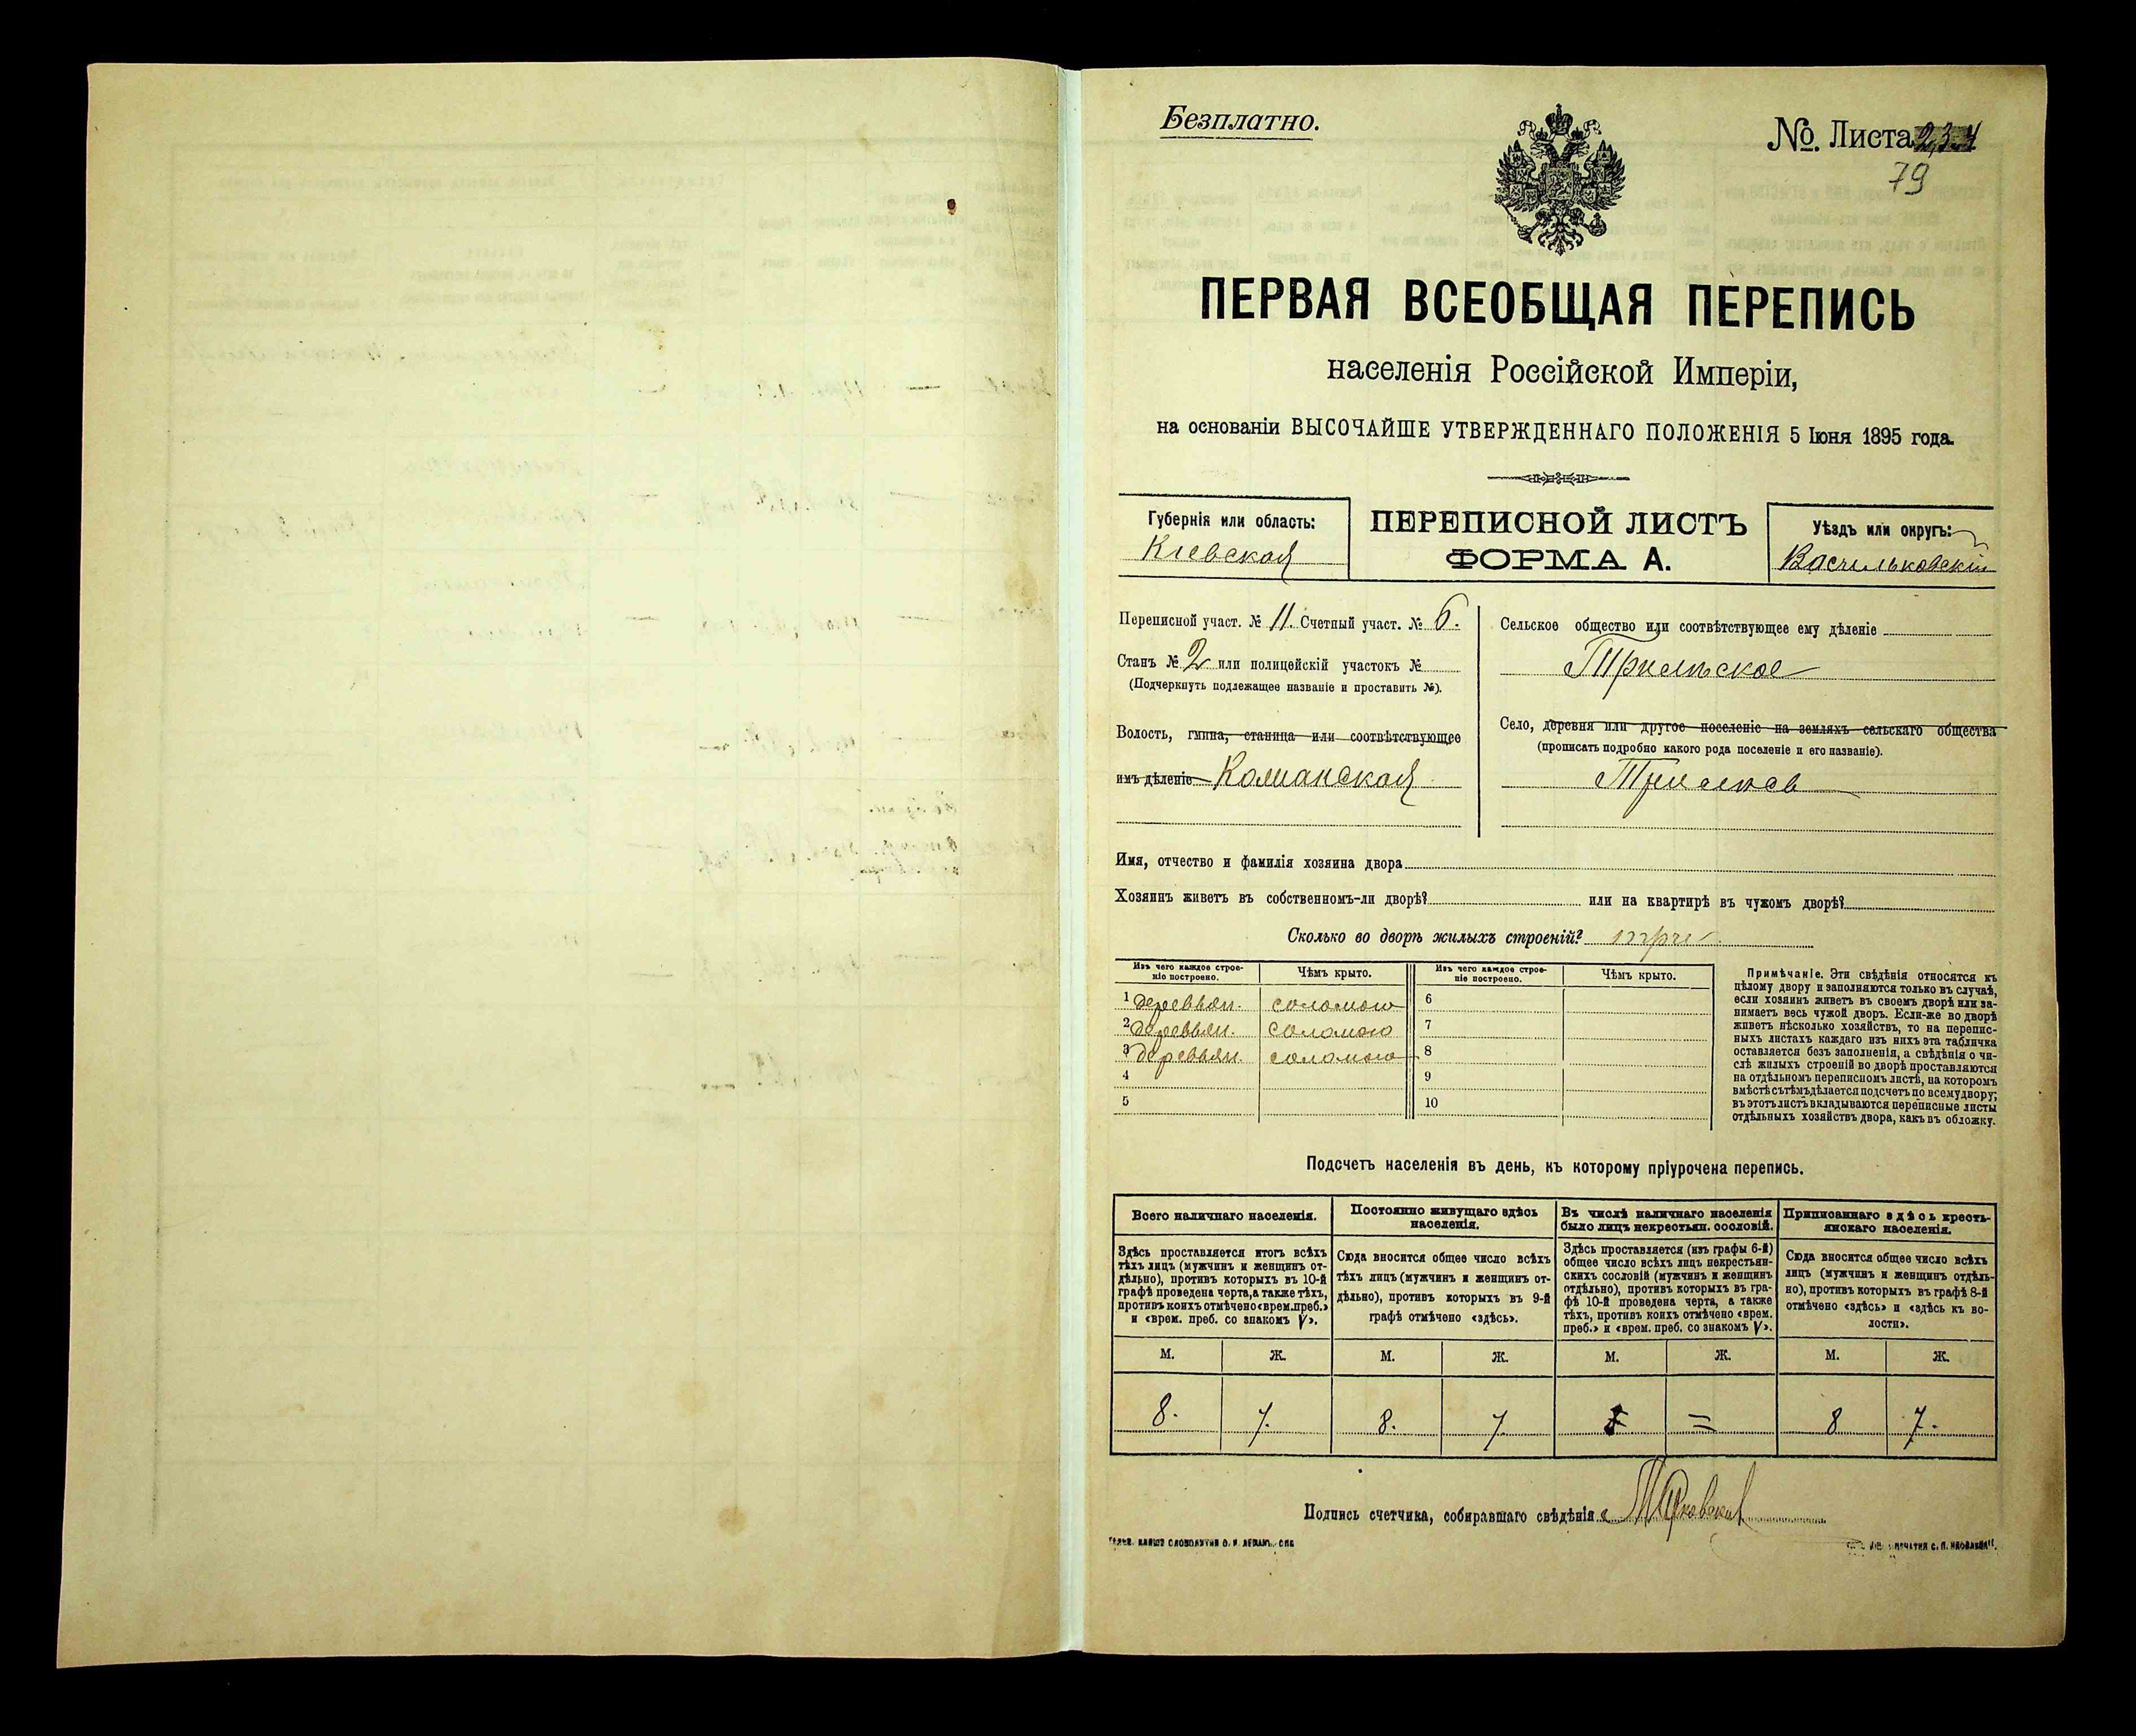 Безплатно.
№ Листа 2,3-4
79
ПЕРВАЯ ВСЕОБЩАЯ ПЕРЕПИСЬ
населенія Россійской Имперіи,
на основаніи ВЫСОЧАЙШЕ УТВЕРЖДЕННАГО ПОЛОЖЕНІЯ 5 Іюня 1895 года.
Губернія или область:
Кіевская
ПЕРЕПИСНОЙ ЛИСТЪ
ФОРМА А.
Уѣздъ или округъ:
Васильковскій
Переписной участ. № 11. Счетный участ. № 6.
Станъ № 2 или полицейскій участокъ №
(Подчеркнуть подлежащее названіе и проставить №).
Волость, гмина, станица или соотвѣтствующее
имъ дѣленіе
Сельское общество или соотвѣтствующее ему дѣленіе
Трилѣское
Село, деревня или другое поселеніе на земляхъ сельскаго общества
(прописать подробно какого рода поселеніе и его названіе).
Имя, отчество и фамилія хозяина двора
Хозяинъ живетъ въ собственномъ-ли дворѣ? или на квартирѣ въ чужомъ дворѣ?
Сколько во дворѣ жилыхъ строеній? три
Изъ чего каждое строе-
ніе построено.
Чѣмъ крыто.
Изъ чего каждое строе-
ніе построено.
Чѣмъ крыто.
1 деревян. соломою 6
2 деревян. соломою 7
3 деревян. соломою 8
4 9
5 10
Примѣчаніе. Эти свѣдѣнія относятся къ
цѣлому двору и заполняются только въ случаѣ,
если хозяинъ живетъ въ своемъ дворѣ или за-
нимаетъ весь чужой дворъ. Если-же во дворѣ
живетъ нѣсколько хозяйствъ, то на перепис-
ныхъ листахъ каждаго изъ нихъ эта табличка
оставляется безъ заполненія, а свѣдѣнія о чи-
слѣ жилыхъ строеній во дворѣ проставляются
на отдѣльномъ переписномъ листѣ, на которомъ
вмѣстѣ съ тѣмъ дѣлается подсчетъ по всему двору;
въ этотъ листъ вкладываются переписные листы
отдѣльныхъ хозяйствъ двора, какъ въ обложку.
Подсчетъ населенія въ день, къ которому пріурочена перепись.
Всего наличнаго населенія.
Здѣсь проставляется итогъ всѣхъ
тѣхъ лицъ (мужчинъ и женщинъ от-
дѣльно), противъ которыхъ въ 10-й
графѣ проведена черта, а также тѣхъ,
противъ коихъ отмѣчено «врем. преб.»
и «врем. преб. со знакомъ V».
Постоянно живущаго здѣсь
населенія.
Сюда вносится общее число всѣхъ
тѣхъ лицъ (мужчинъ и женщинъ от-
дѣльно), противъ которыхъ въ 9-й
графѣ отмѣчено «здѣсь».
Въ числѣ наличнаго населенія
было лицъ некрестьян. сословій.
Здѣсь проставляется (изъ графы 6-й)
общее число всѣхъ лицъ некрестьян-
скихъ сословій (мужчинъ и женщинъ
отдѣльно), противъ которыхъ въ гра-
фѣ 10-й проведена черта, а также
тѣхъ, противъ коихъ отмѣчено «врем.
преб.» и «врем. преб. со знакомъ V».
Приписаннаго здѣсь кресть-
янскаго населенія.
Сюда вносится общее число всѣхъ
лицъ (мужчинъ и женщинъ отдѣль-
но), противъ которыхъ въ графѣ 8-й
отмѣчено «здѣсь» и «здѣсь къ во-
лости».
М. Ж. М. Ж. М. Ж. М. Ж.
8. 7. 8. 7 = 8 7.
Подпись счетчика, собиравшаго свѣдѣнія